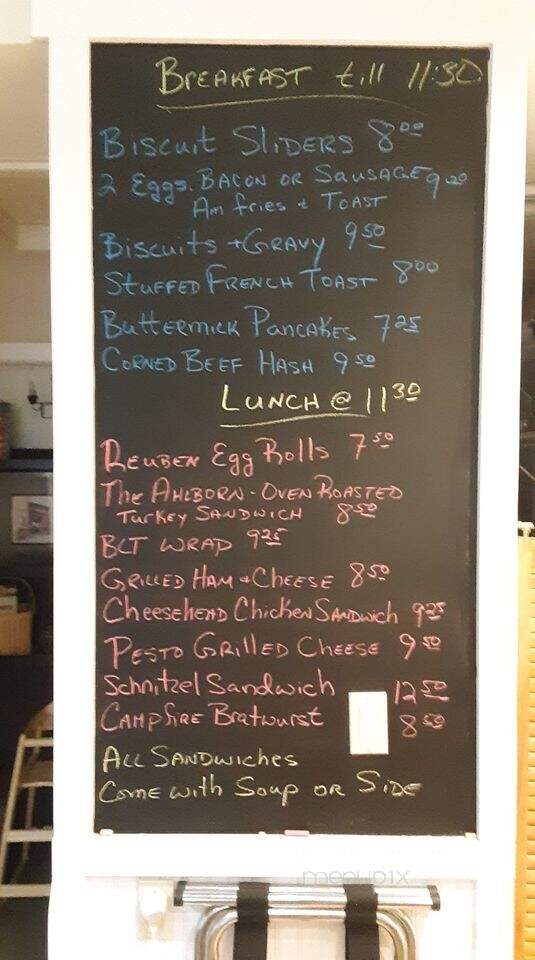 BREAKFAST till 11:30
Biscuit SLIDERS 8 00
2 Eggs. BACON OR SAUSAGE 9 00
Am fries + TOAST
Biscuits + GRAVY 9 50
STUFFED FRENCH TOAST 8 00
Buttermick PANCAKES 7 25
CORNED BEEF HASH 9 50
LUNCH @ 11 30
REUBEN Egg Rolls 7 50
The AHLBORN - OVEN ROASTED
TURKEY SANDWICH 8 50
BLT WRAP 9 25
GRILLED HAM + CHEESE 8 50
CheeseHEAD Chicken SANDWICH 9 25
PESTO GRILLED CHEESE 9 50
Schnitzel Sandwich 12 50
CAMPFIRE Bratwurst 8 50
ALL SANDWICHES
Come with Soup OR SIDE
menupix